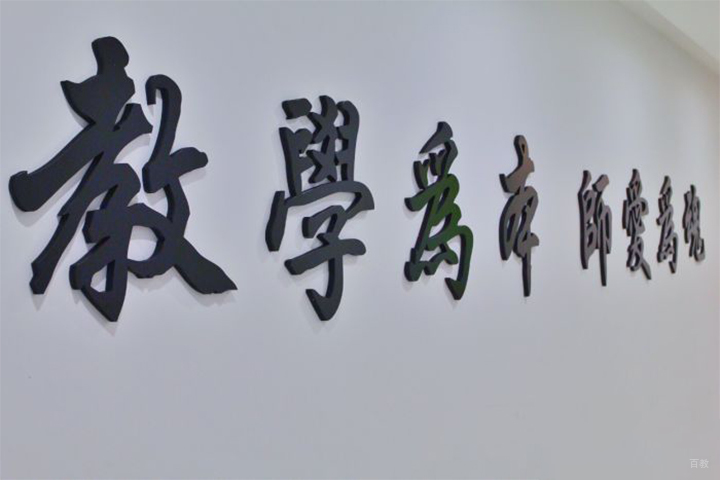 教學爲本 師愛爲魂
百教